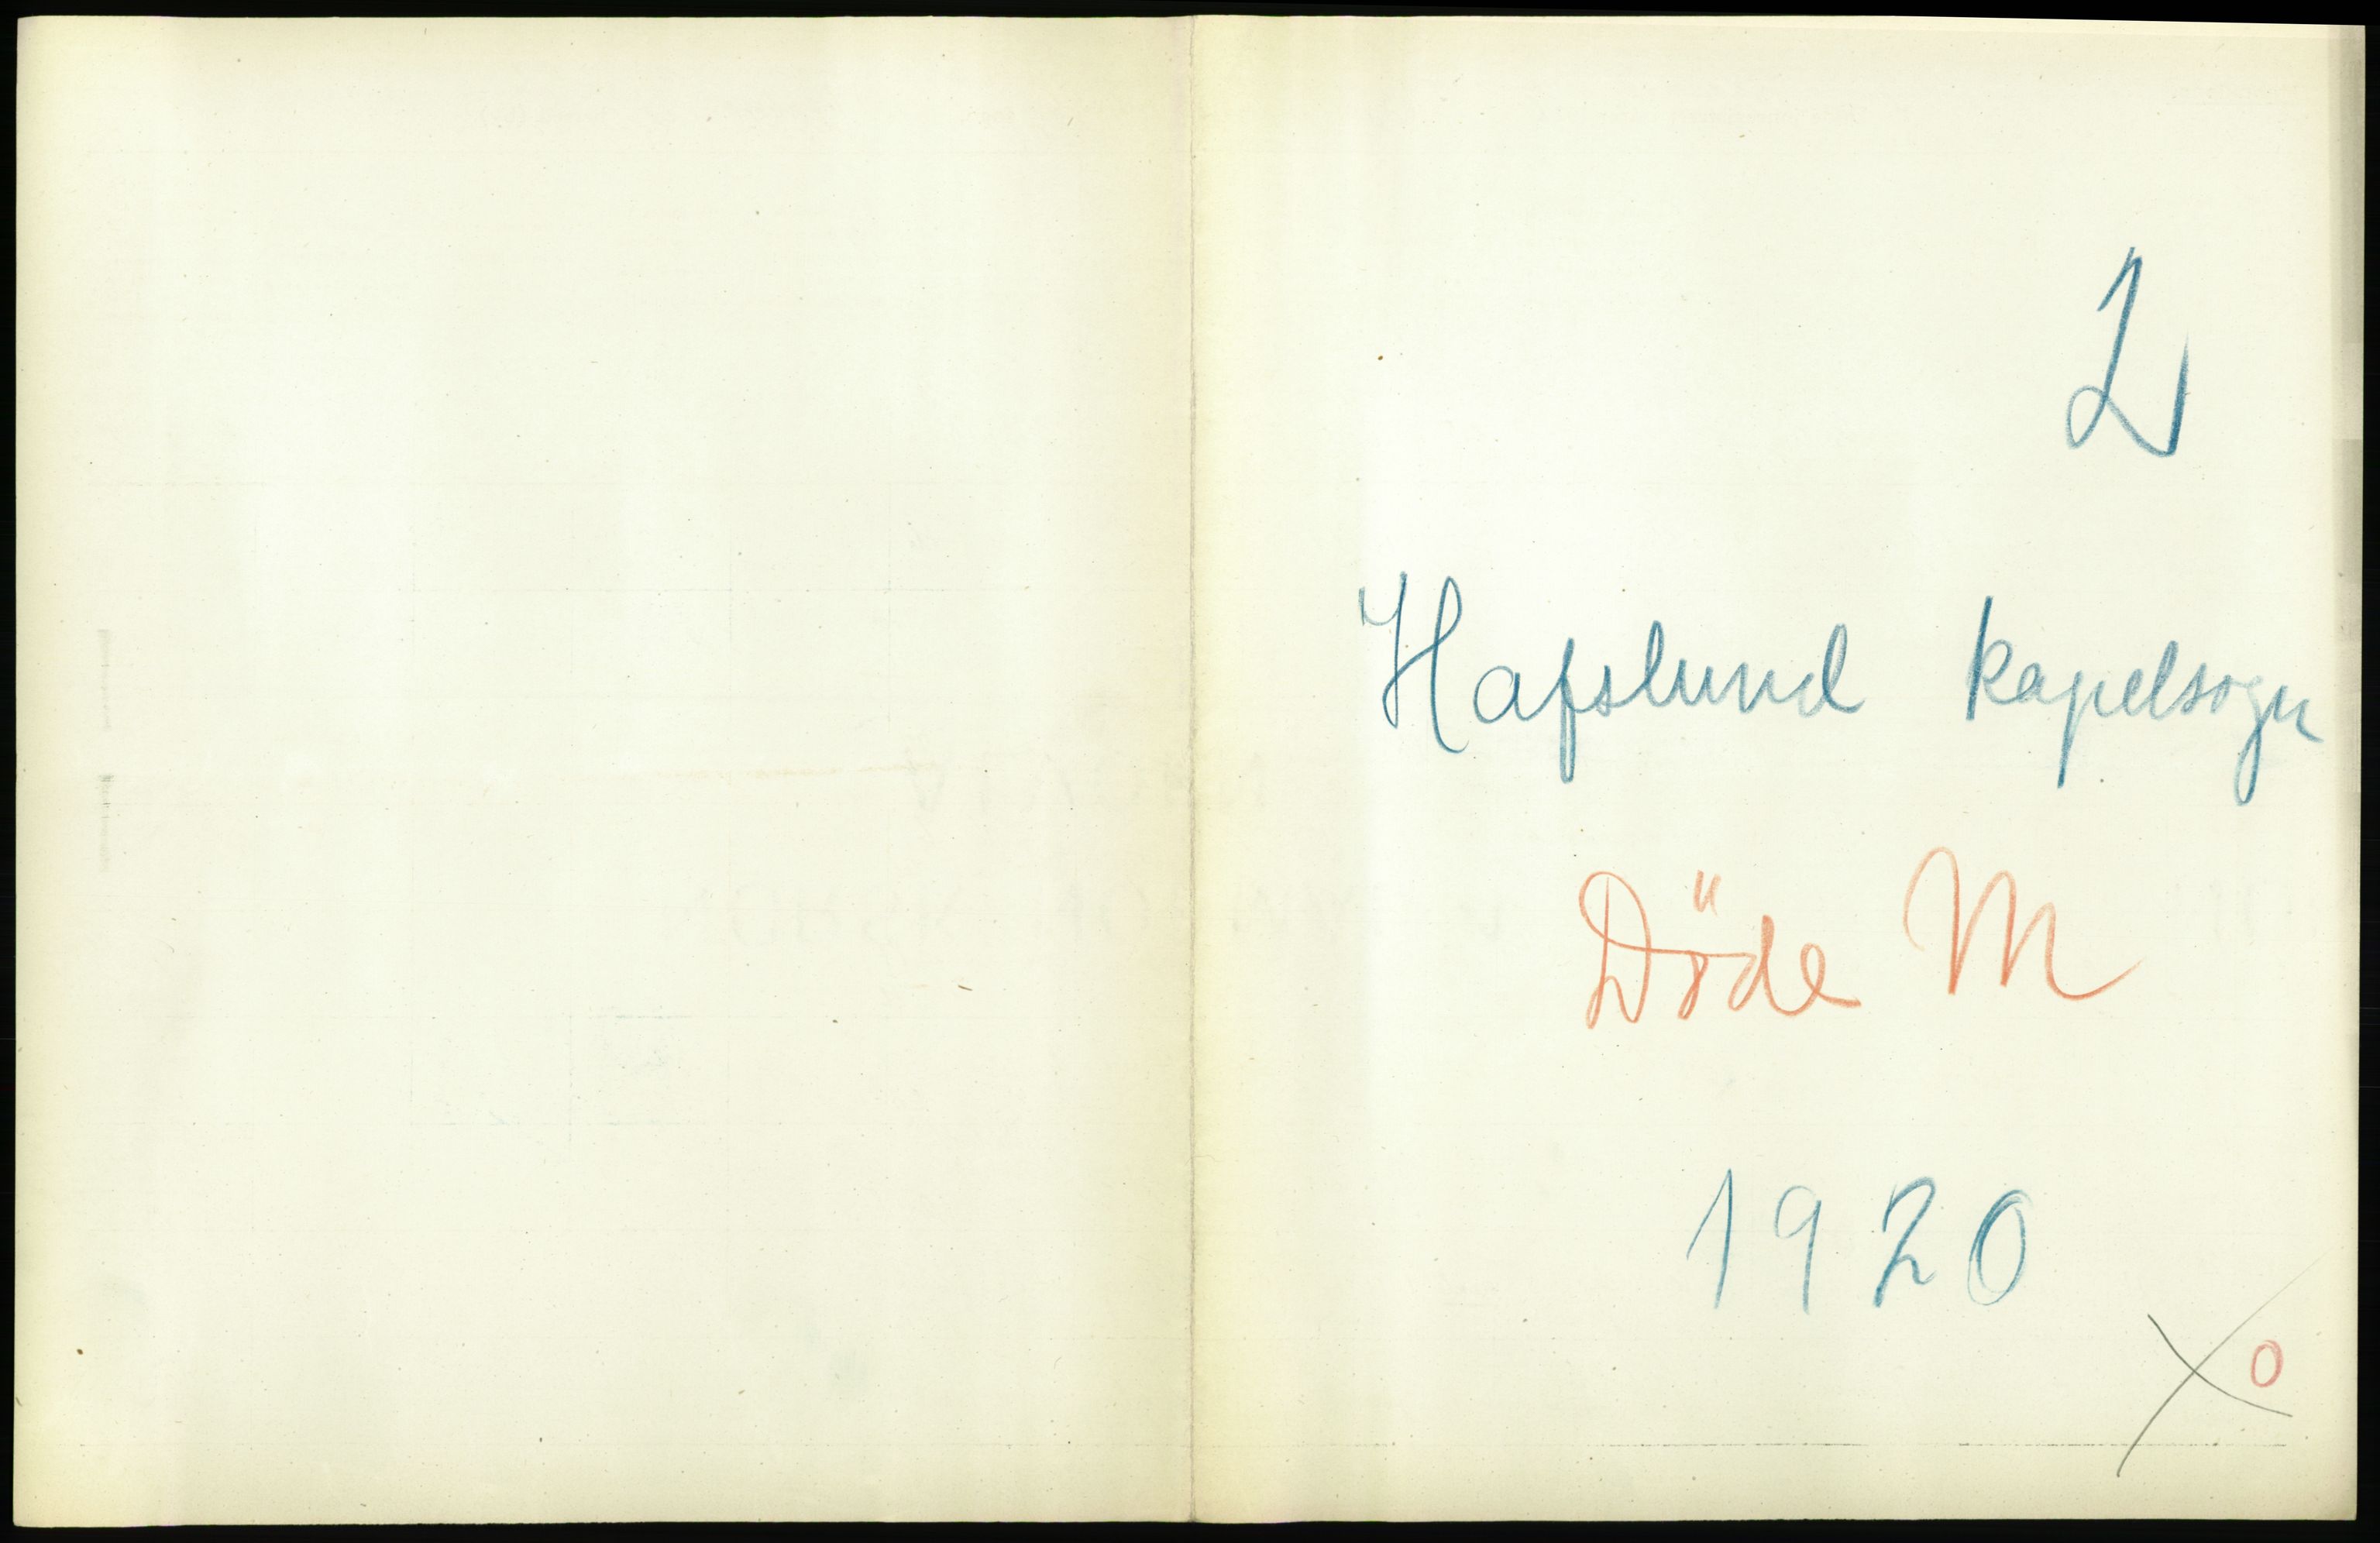 2
Hafslund kapelsogn
Döde M
1920
X 0